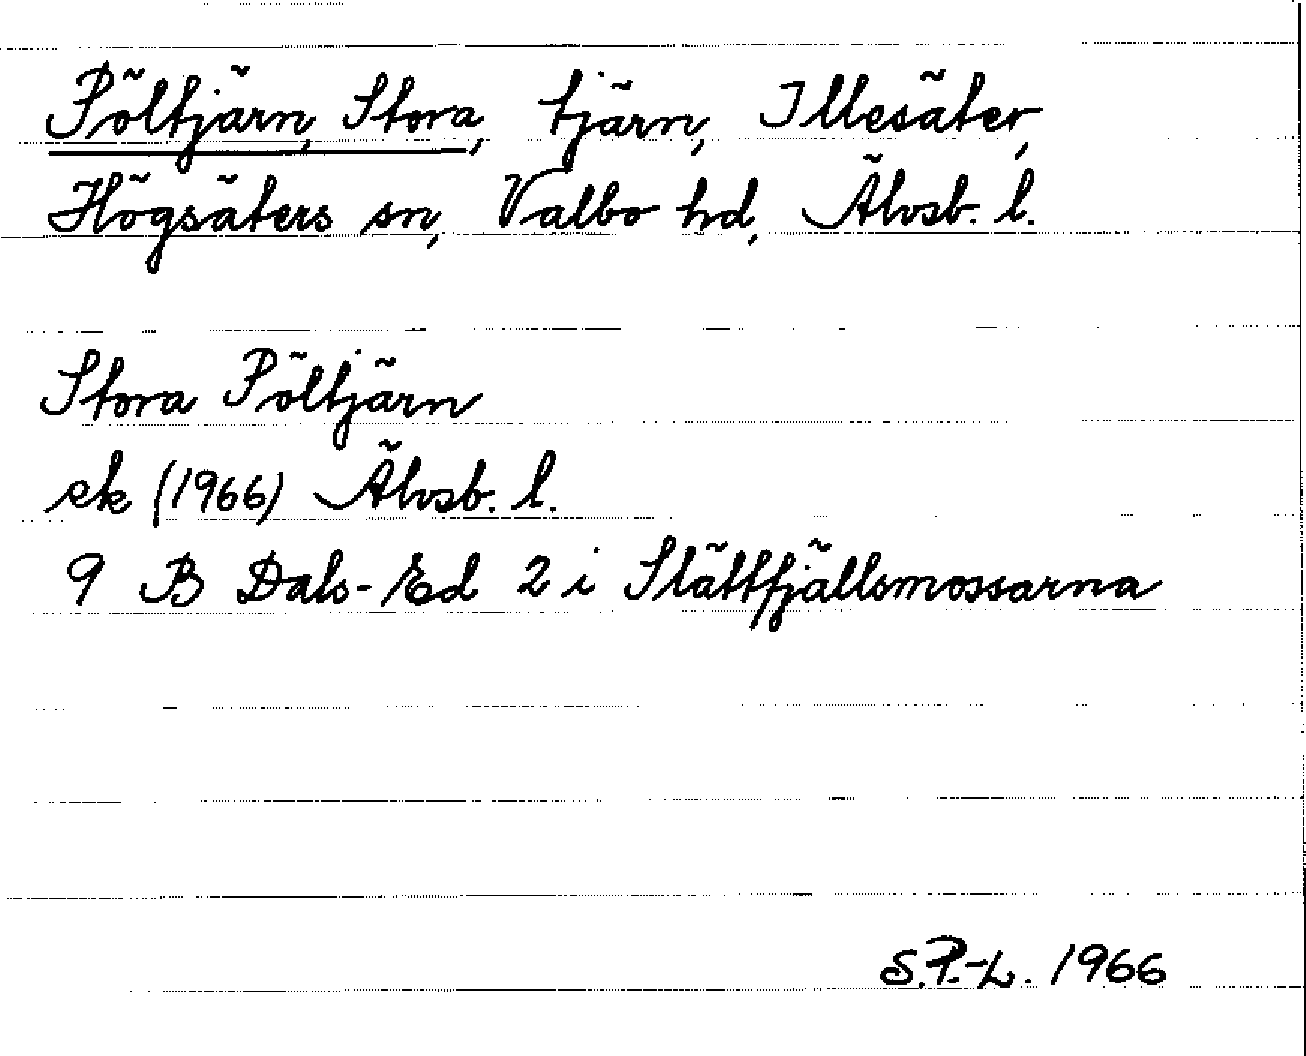 Pöltjärn, Stora, tjärn, Illesäter,
Högsäters sn, Valbo hd, Älvsb. l.
Stora Pöltjärn
ek (1966) Älvsb. l.
9 B Dals-Ed 2 i Slättfjällsmossarna
S.P.-L. 1966